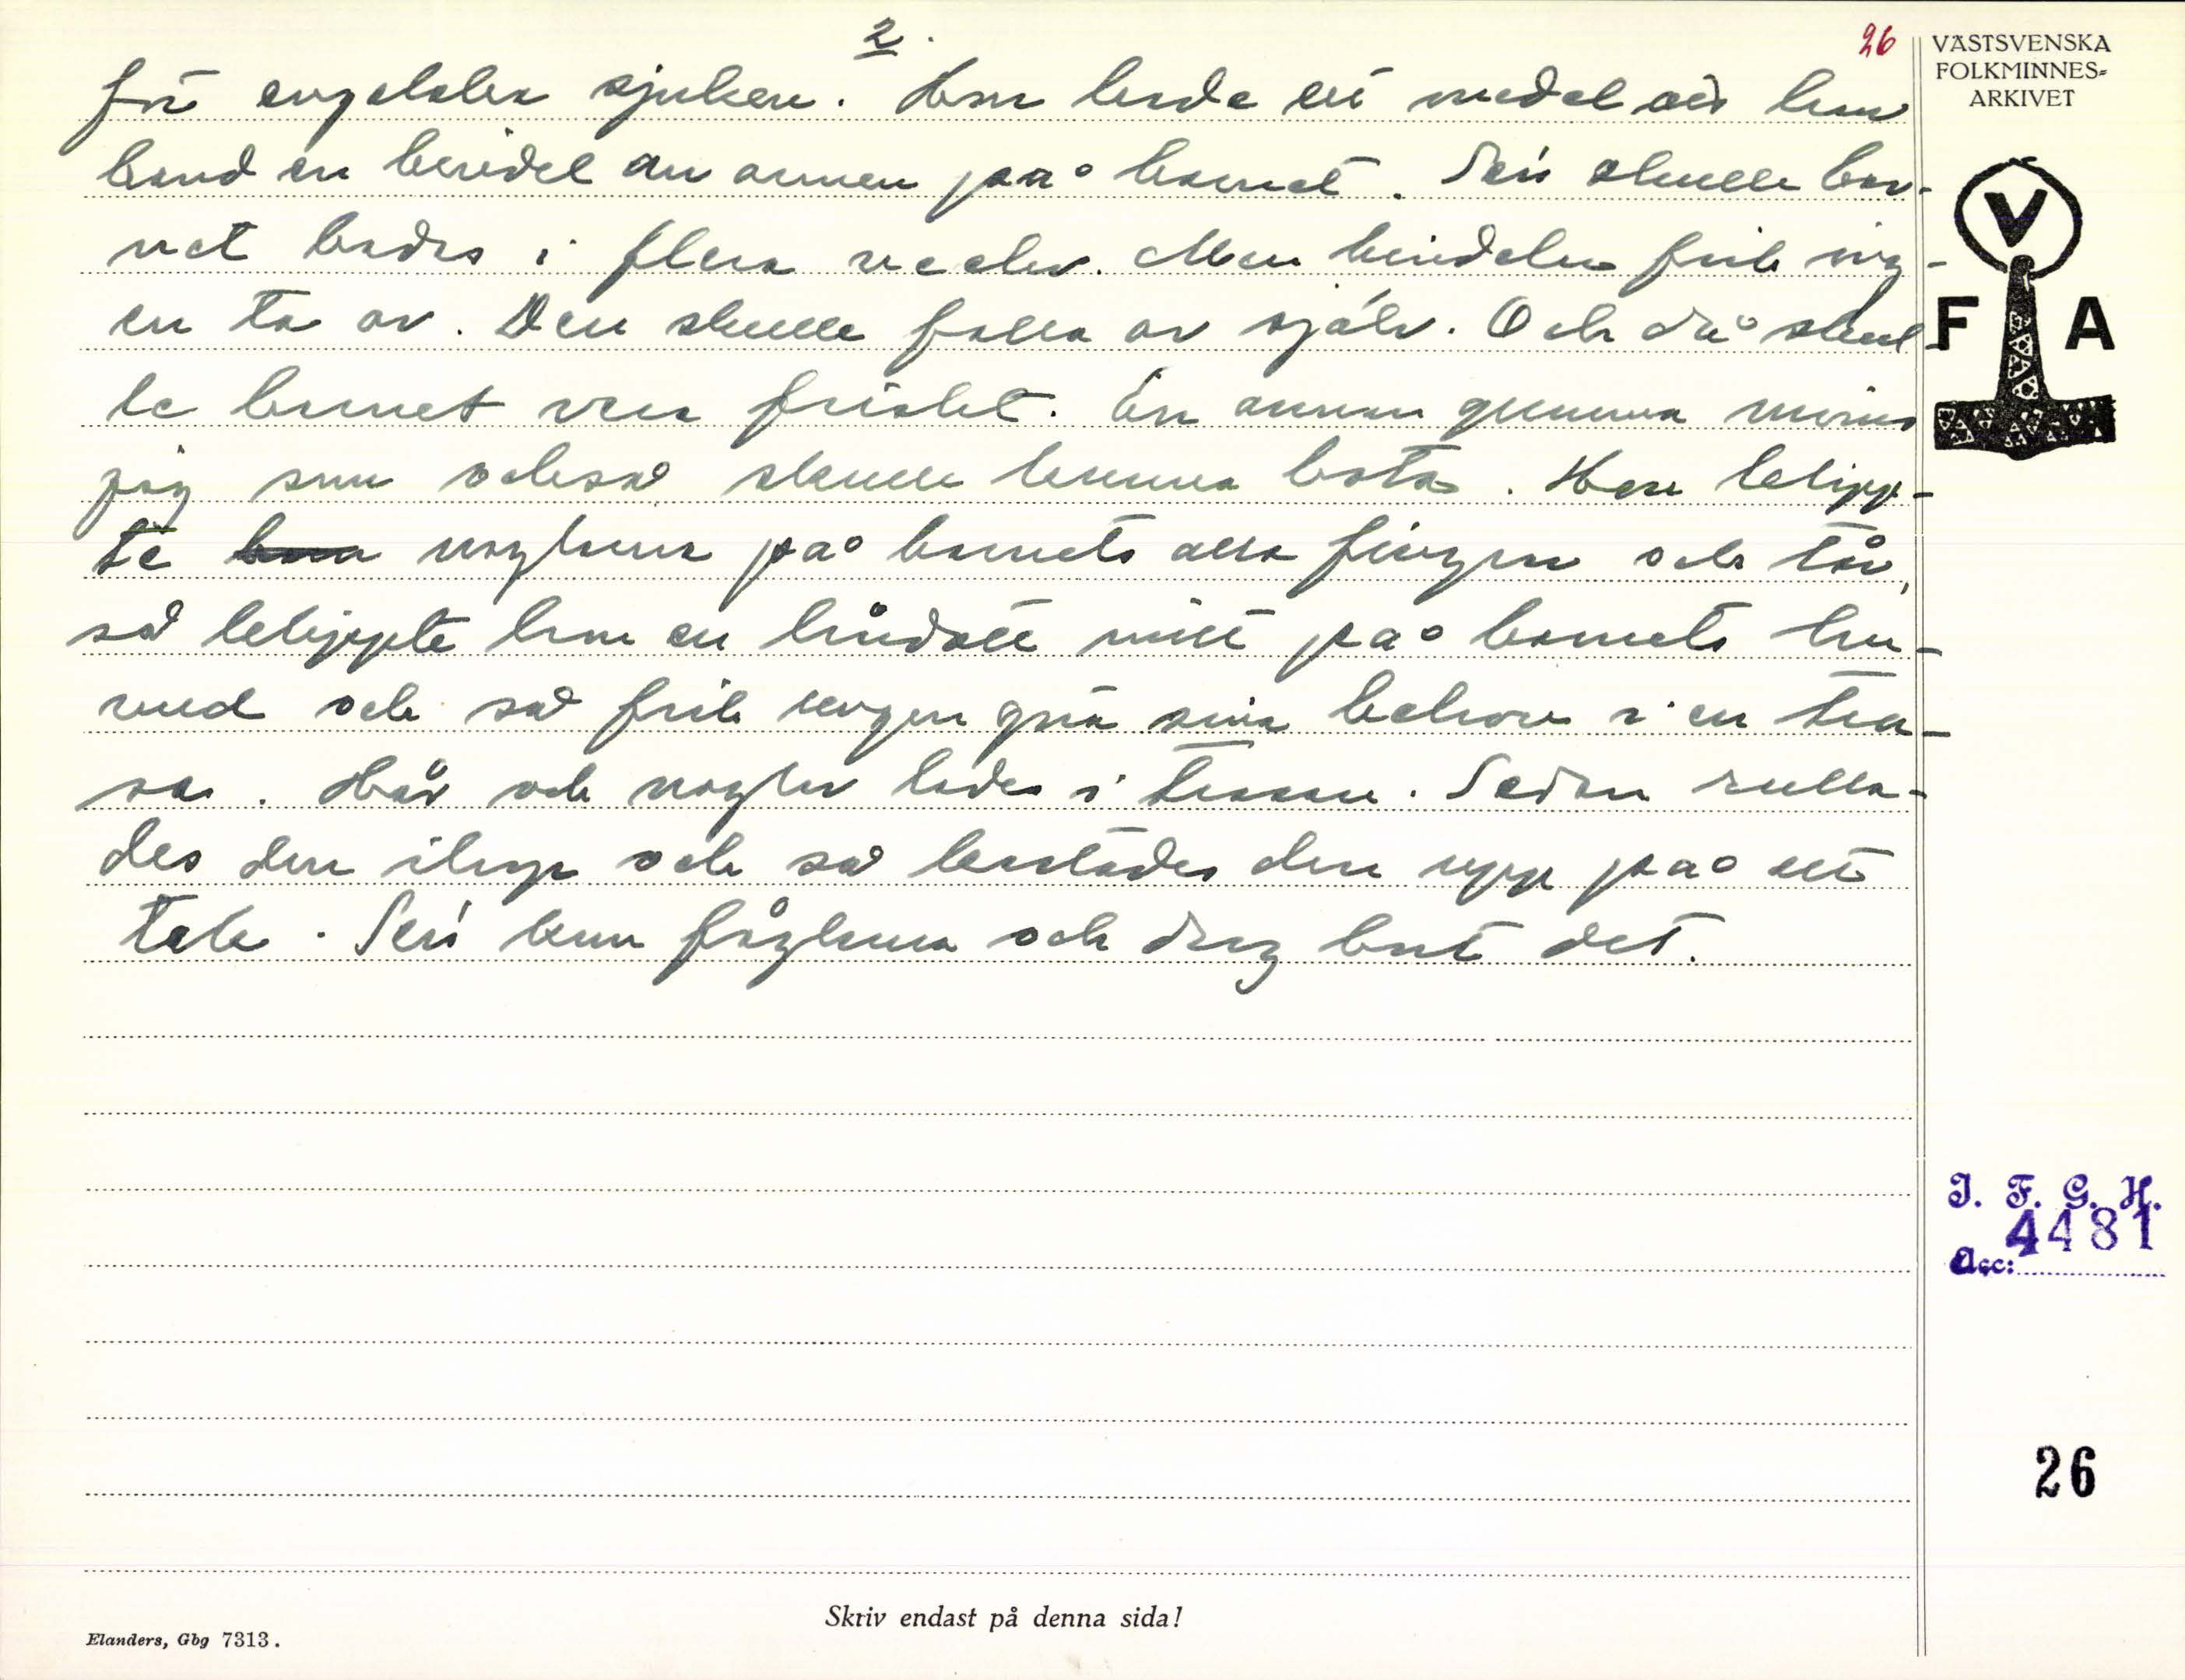 2.
26
för engelska sjukan. Hon hade ett medel att hon
band en bindel om armen på barnet. Sen skulle bar-
net badas i flera veckor. Men bindeln fick ing-
en ta av. Den skulle falla av själv. Och då skul-
le barnet vara friskt. En annan gumma minns
jag som också skulle kunna bota. Hon klipp-
te naglarna på barnets alla fingrar och tår,
så klippte hon en hårdott mitt på barnets hu-
vud och så fick ungen göra sina behov i en tra-
sa. Hår och naglar lades i trasan. Sedan rulla-
des den ihop och så kastades den upp på ett
tak. Sen kom fåglarna och drog bort det.
VÄSTSVENSKA
FOLKMINNES-
ARKIVET
V
F A
I. F. G. H.
4481
Acc:
26
Skriv endast på denna sida!
Elanders, Gbg 7313.